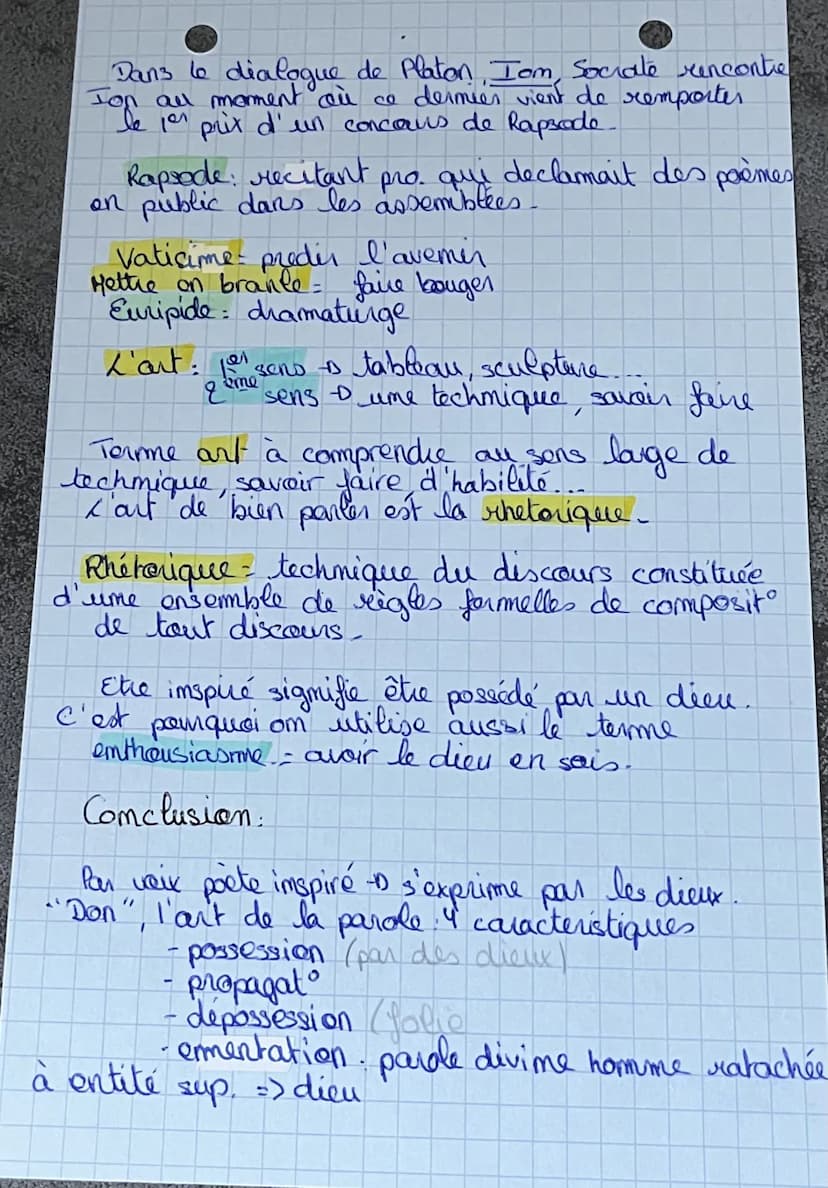 Dans le dialogue de Platon, Ion, Socrate rencontre
Ion au moment où ce dernier vient de remporter
le 1er prix d'un concours de Rapsode.
Rapsode : recitant pro. qui declamait des poèmes
en public dans les assemblées.
Vaticine = predir l'avenir
Mettre en branle = faire bouger
Euripide = dramaturge
L'art : 1er sens → tableau, sculpture...
2ème sens → une technique, savoir faire
Terme art à comprendre au sens large de
technique, savoir faire, d'habilité...
L'art de bien parler est la rhetorique.
Rhétorique = technique du discours constituée
d'une ensemble de règles formelles de composit°
de tout discours.
Etre inspiré signifie être possédé par un dieu.
C'est pourquoi on utilise aussi le terme
enthousiasme. = avoir le dieu en sois.
Conclusion :
Par voix poète inspiré → s'exprime par les dieux.
"Don", l'art de la parole : 4 caracteristiques
- possession (par des dieux)
- propagat°
- dépossession (folie
- ermentation. parole divine homme ratachée
à entité sup. => dieu